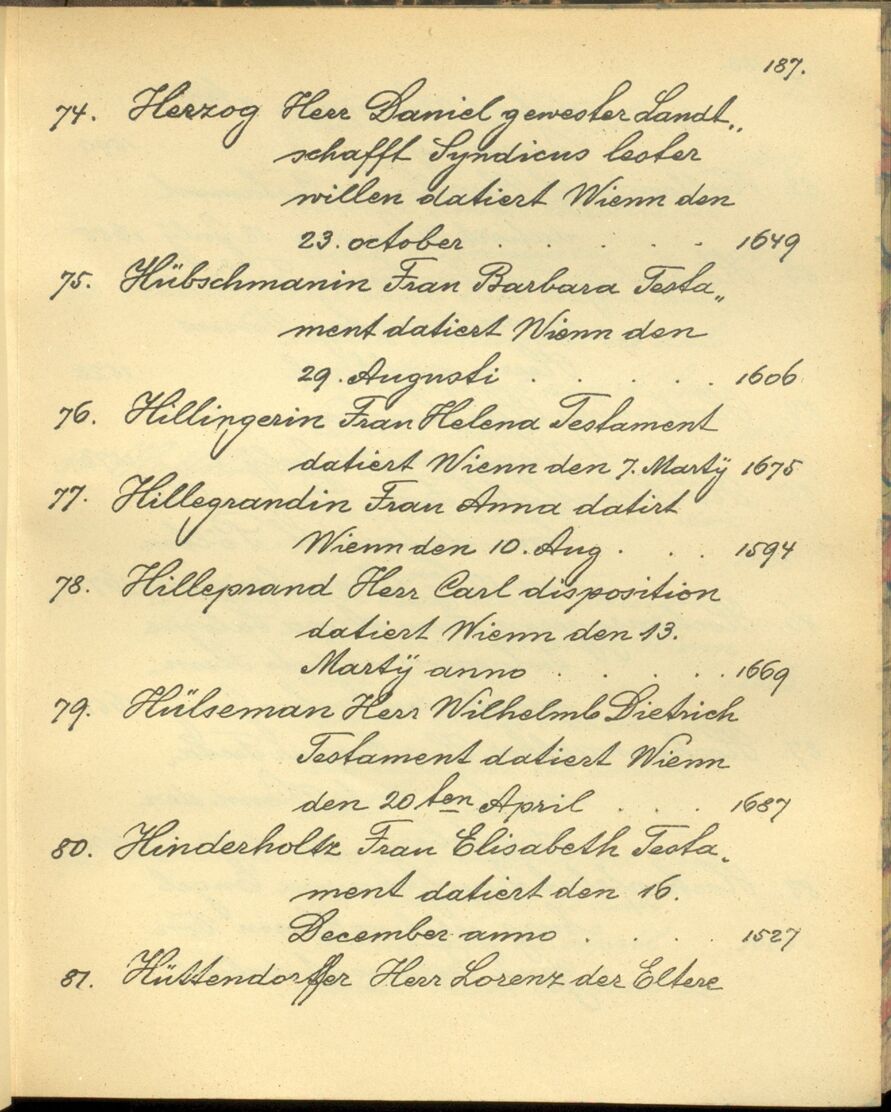 187.
74. Herzog Herr Daniel gewester Landt„
schafft Syndicus lester
willen datiert Wienn den
23. october . . . . . 1649
75. Hübschmanin Frau Barbara Testa„
ment datiert Wienn den
29. Augusti . . . . . 1606
76. Hillingerin Frau Helena Testament
datiert Wienn den 7. Martÿ 1675
77. Hillegrandin Frau Anna datirt
Wienn den 10. Aug . . . 1594
78. Hilleprand Herr Carl disposition
datiert Wienn den 13.
Martÿ anno . . . . . 1669
79. Hülseman Herr Wilhelmb Dietrich
Testament datiert Wienn
den 20ten April . . . 1687
80. Hinderholtz Frau Elisabeth Testa„
ment datiert den 16.
December anno . . . . 1527
81. Hüttendorffer Herr Lorenz der Eltere